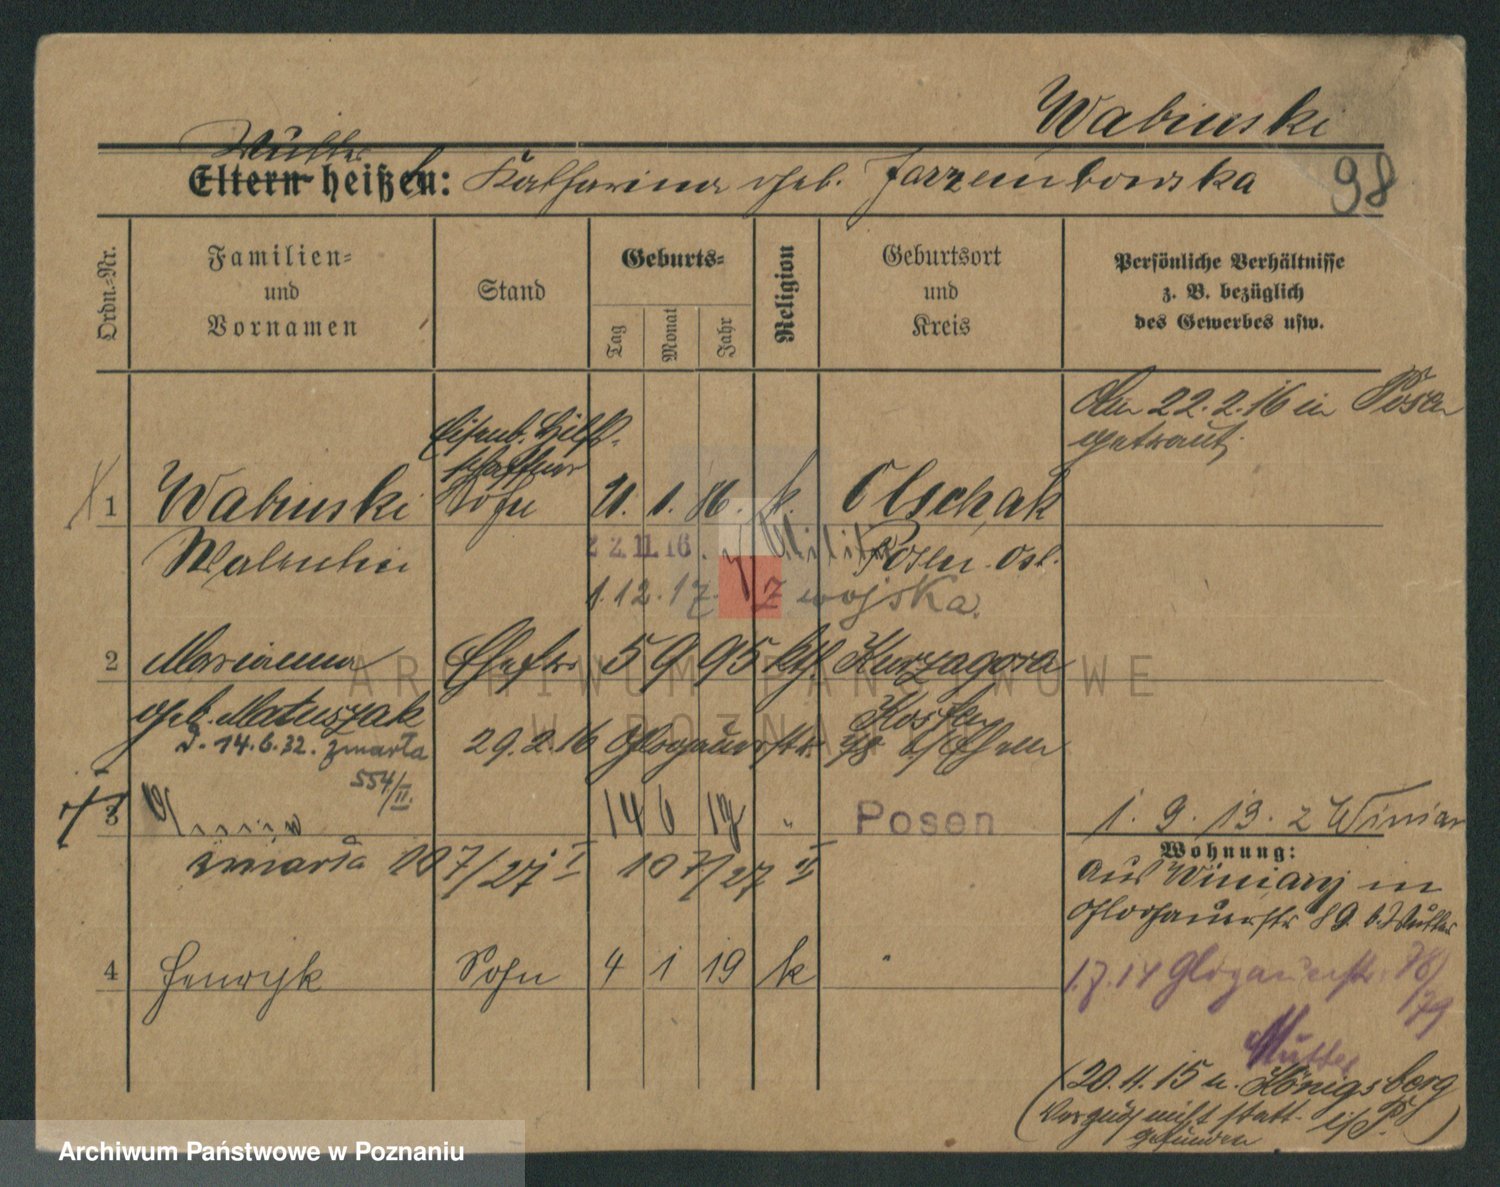 Wabinski
Mutter
Eltern heißen: Katharina geb. Jarzembowska
98
Ordn.-Nr.
Familien-
und
Vornamen
Stand
Geburts-
Tag
Monat
Jahr
Religion
Geburtsort
und
Kreis
Persönliche Verhältnisse
z. B. bezüglich
des Gewerbes usw.
Am 22.2.16 in Posen
getraut.
Eisenb. Hilfs-
schaffner
1 Wabinski Sohn 21. 1. 86. k. Olschak
Walentin 22.11.16. Militär Posen. Ost.
1.12.17. z wojska.
2 Marianna Ehefr. 5 9 95 kth. Kurzagora
geb. Matuszak Kosten
D. 14.6.32. zmarła 29.2.16 Glogauerstr. 78 b/ Ehem
554/II.
3 14 6 Posen 1. 9. 13. z Winiar
zmarła 107/27 I 107/27 II
Wohnung:
aus Winiary in
Glogauerstr 89 b. Mutter
4 Henryk Sohn 4 1 19 k "
1.7.14 Glogauerstr. 78/79
Mutter
(20.4.15 n. Königsberg
Verzug nicht statt- i/P.)
gefunden
ARCHIWUM PAŃSTWOWE
W POZNANIU
Archiwum Państwowe w Poznaniu